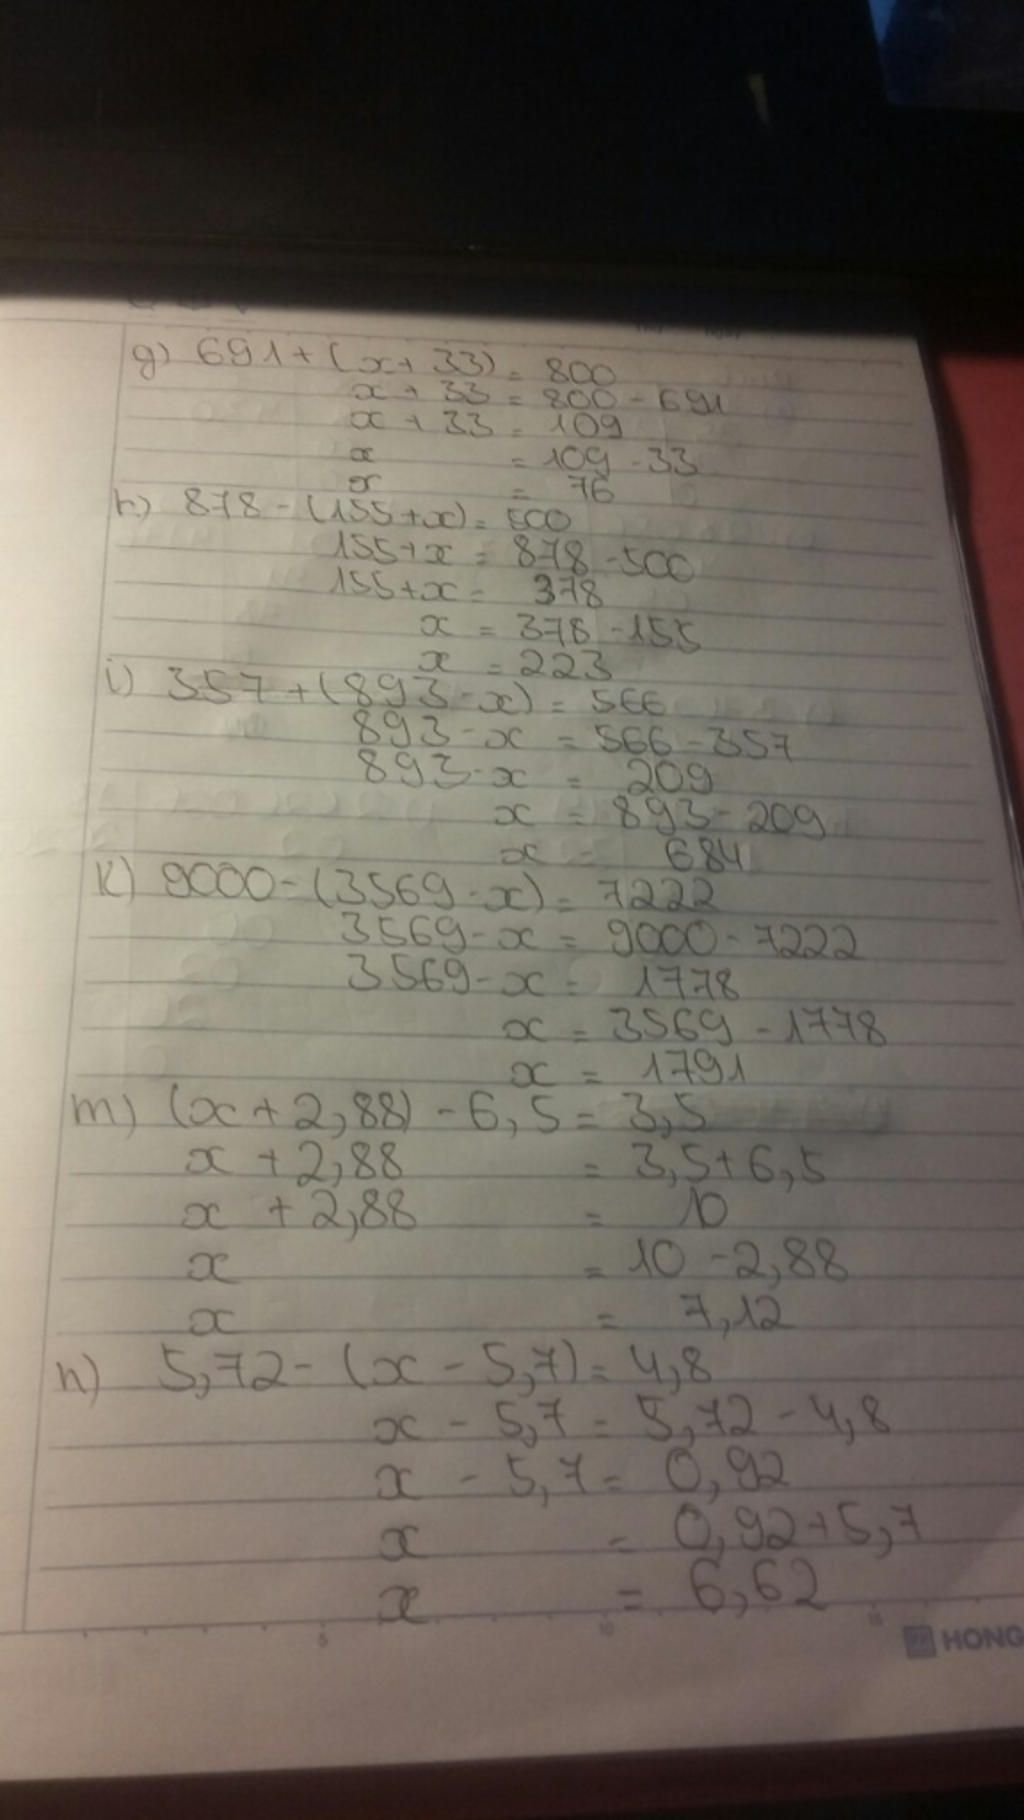 g) 691 + (x + 33) = 800
x + 33 = 800 - 691
x + 33 = 109
x = 109 - 33
x = 76
h) 878 - (155 + x) = 500
155 + x = 878 - 500
155 + x = 378
x = 378 - 155
x = 223
i) 357 + (893 - x) = 566
893 - x = 566 - 357
893 - x = 209
x = 893 - 209
x = 684
k) 9000 - (3569 - x) = 7222
3569 - x = 9000 - 7222
3569 - x = 1778
x = 3569 - 1778
x = 1791
m) (x + 2,88) - 6,5 = 3,5
x + 2,88 = 3,5 + 6,5
x + 2,88 = 10
x = 10 - 2,88
x = 7,12
n) 5,72 - (x - 5,7) = 4,8
x - 5,7 = 5,72 - 4,8
x - 5,7 = 0,92
x = 0,92 + 5,7
x = 6,62
5 10 15
HONG